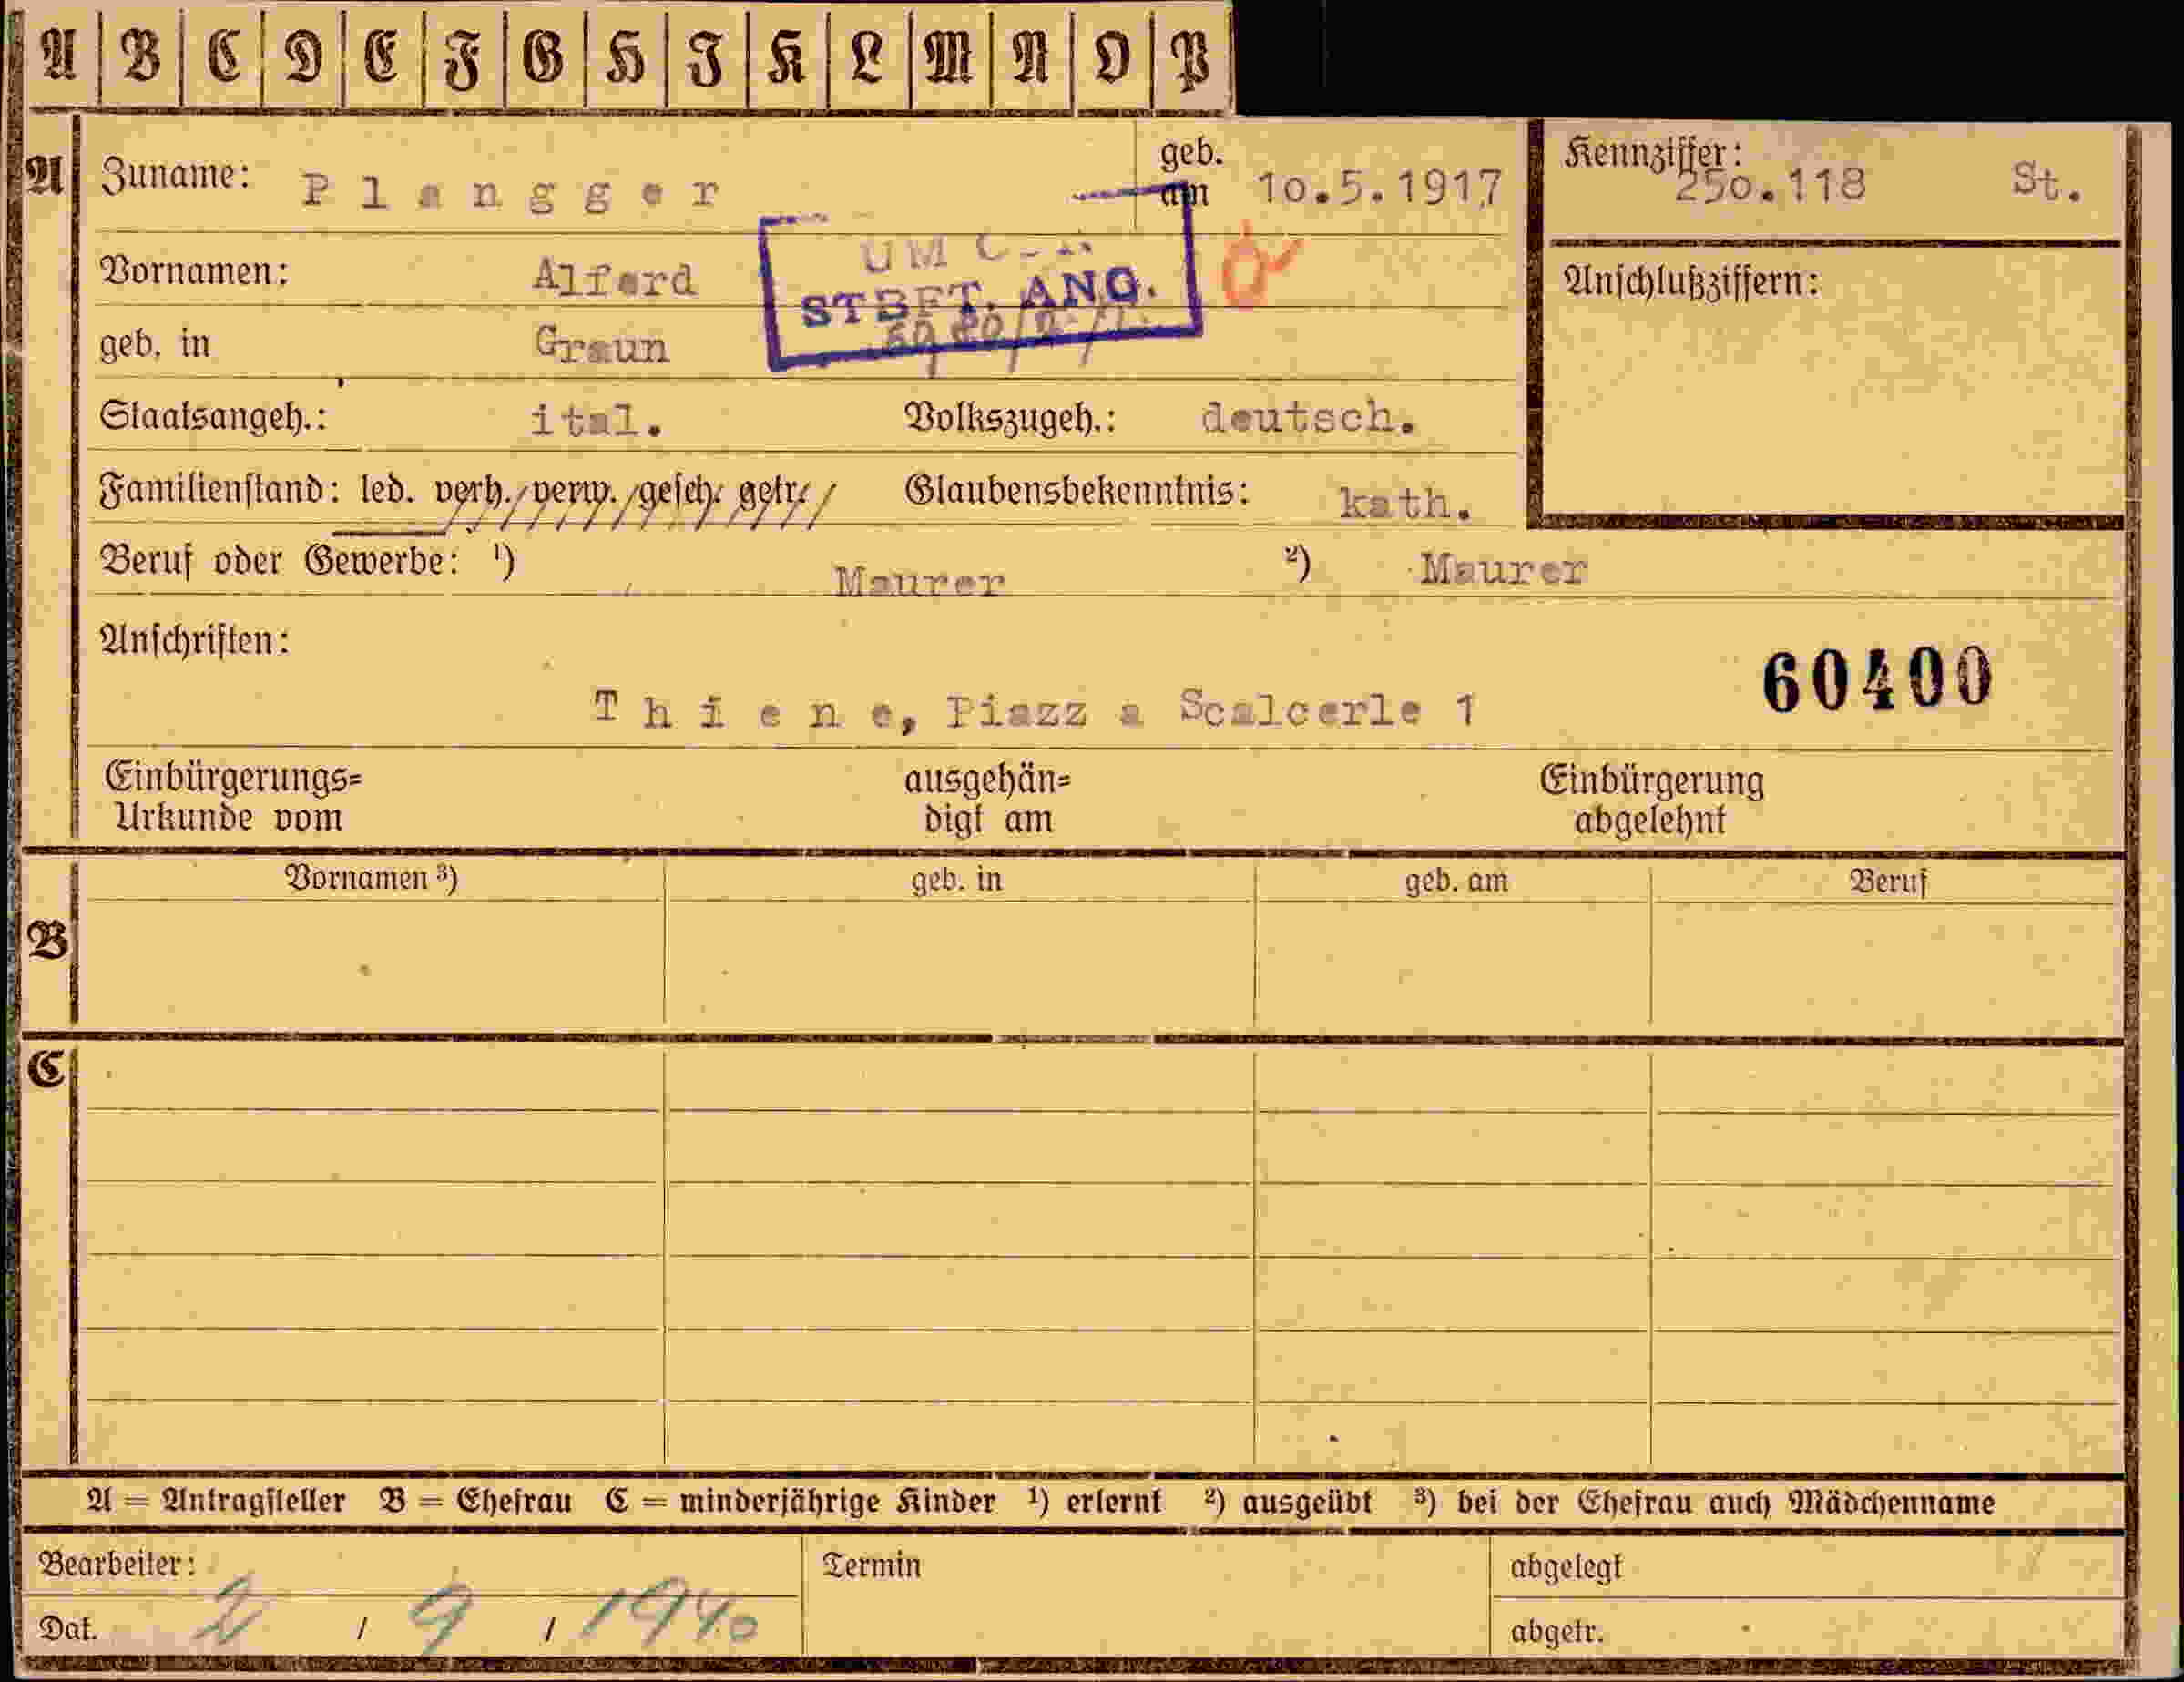 A B C D E F G H I K L M N O P
A Zuname: Plangger geb. am 10.5.1917 Kennziffer: 250.118 St.
Vornamen: Alferd Anschlußziffern:
STBFT. ANG.
geb. in Graun
Staatsangeh.: ital. Volkszugeh.: deutsch.
Familienstand: led. verh. verw. gesch. getr. Glaubensbekenntnis: kath.
Beruf oder Gewerbe: 1) Maurer 2) Maurer
Anschriften:
60400
Thiene, Piazza Scalcerle 1
Einbürgerungs= ausgehän= Einbürgerung
Urkunde vom digt am abgelehnt
Vornamen 3) geb. in geb. am Beruf
B
C
A = Antragsteller B = Ehefrau C = minderjährige Kinder 1) erlernt 2) ausgeübt 3) bei der Ehefrau auch Mädchenname
Bearbeiter: Termin abgelegt
Dat. 2 / 9 / 1940 abgetr.